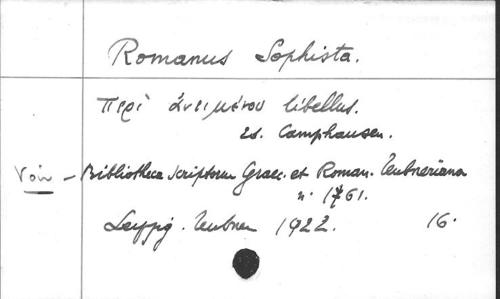 Romanus Sophista.
Περὶ ἀνειμένου libellus.
ed. Camphausen.
Voir – Bibliotheca scriptorum Graec. et Roman. Teubneriana
n. 1761.
Leipzig. Teubner 1922. 16.